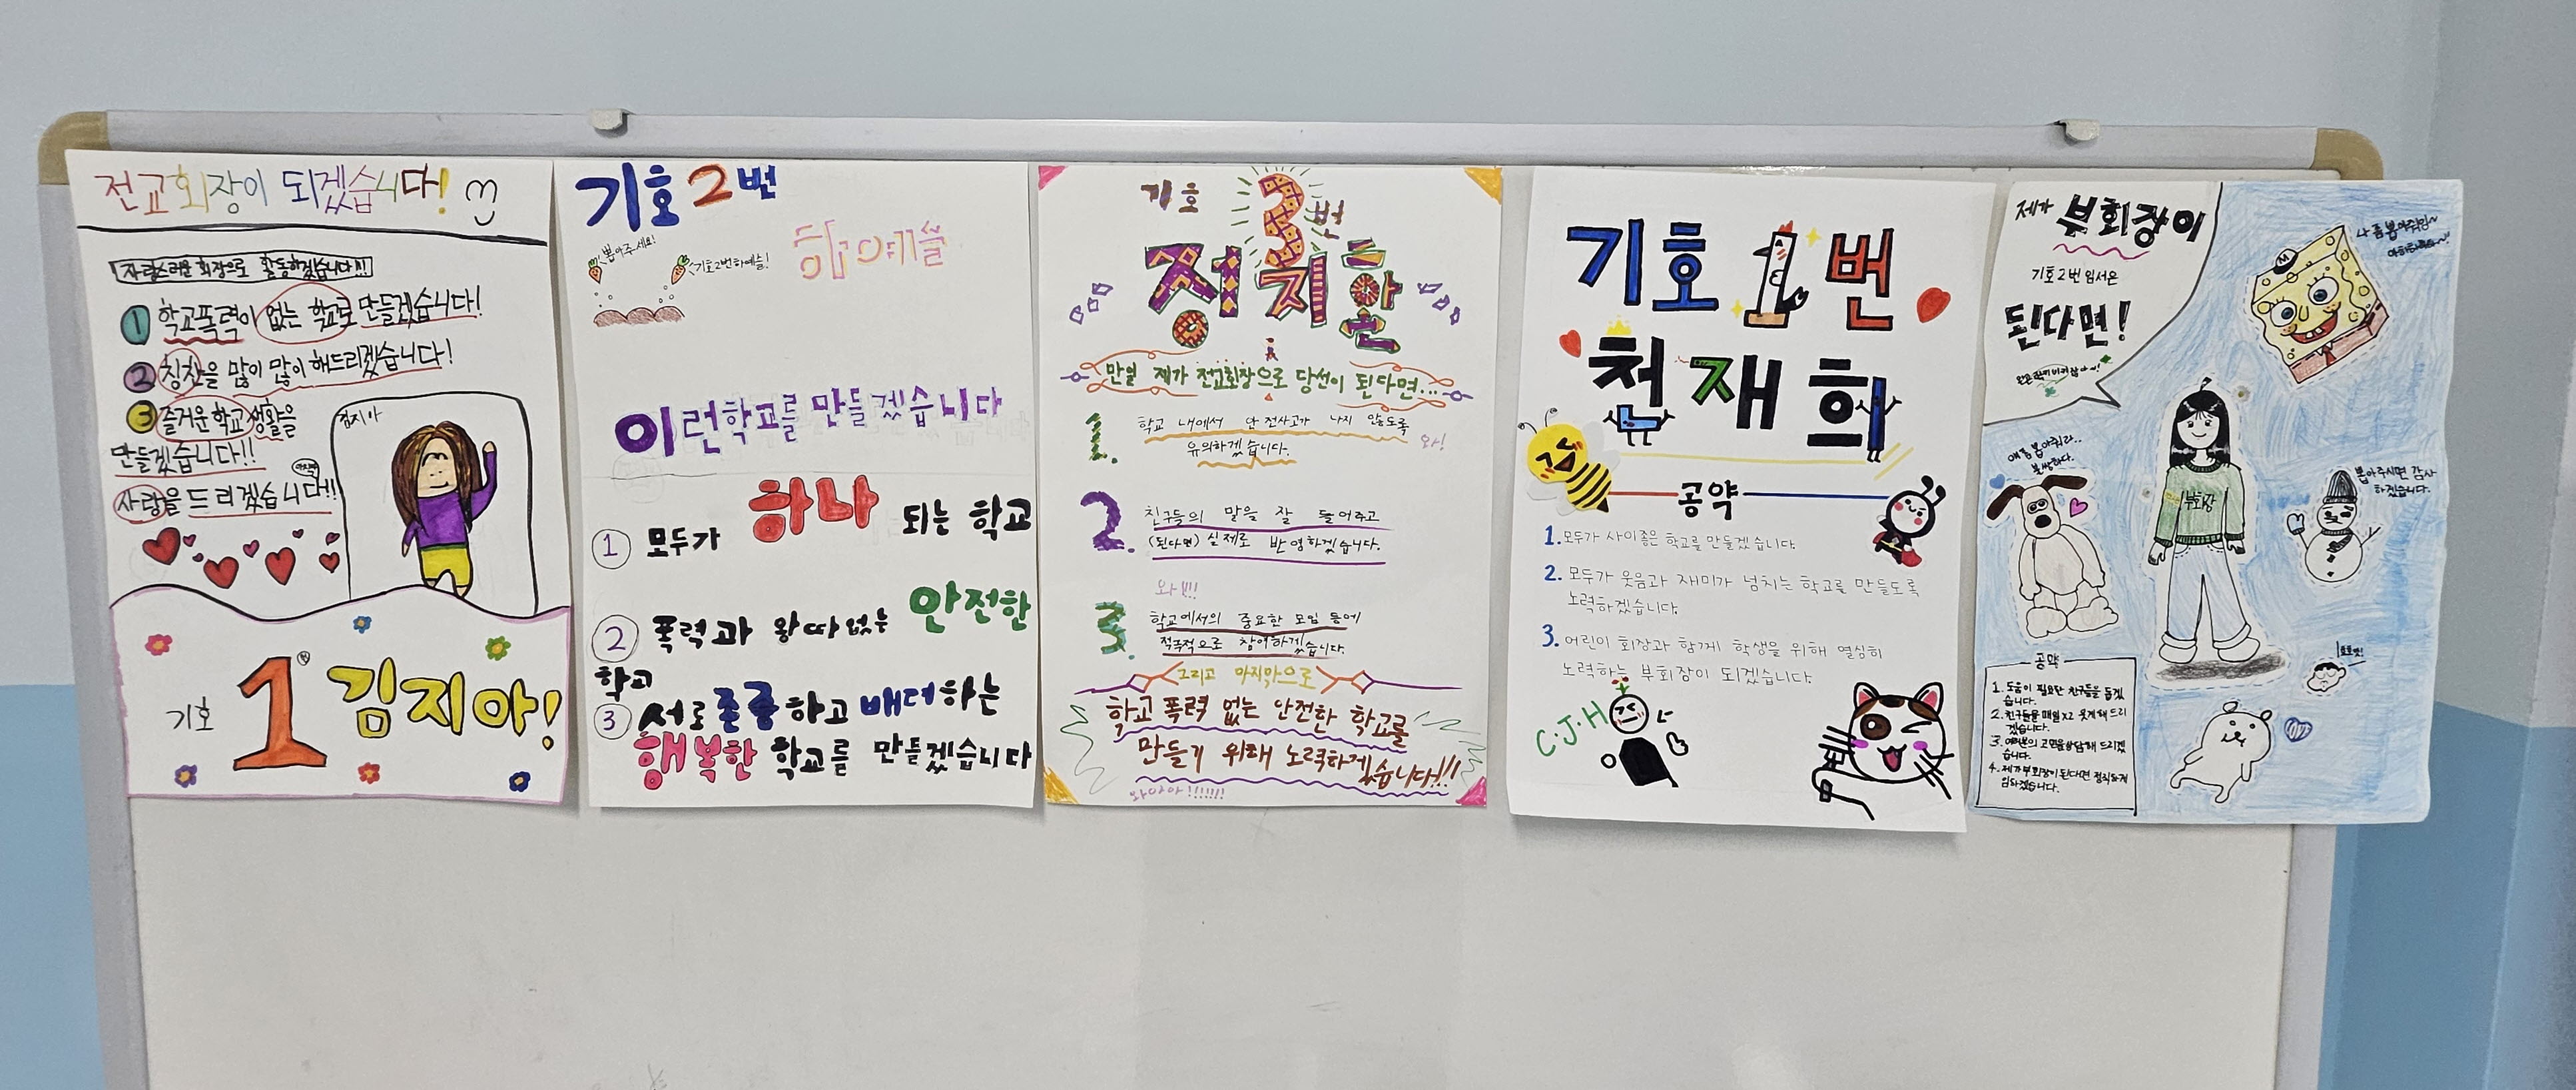 전교회장이 되겠습니다!
자랑스러운 회장으로 활동하겠습니다!!!
1 학교폭력이 없는 학교로 만들겠습니다!
2 칭찬을 많이 많이 해드리겠습니다!
3 즐거운 학교 생활을
만들겠습니다!!
사랑을 드리겠습니다!!
김지아
기호 1번 김지아!
기호2번
뽑아주세요!
기호2번하예슬!
하예슬
이런학교를 만들겠습니다
1 모두가 하나 되는 학교
2 폭력과 왕따없는 안전한
학교
3 서로 존중하고 배려하는
행복한 학교를 만들겠습니다
기호 3번
정지환
만일 제가 전교회장으로 당선이 된다면...
1. 학교 내에서 안전사고가 나지 않도록
유의하겠습니다.
와!
2. 친구들의 말을 잘 들어주고
(된다면) 실제로 반영하겠습니다.
와!!!
3. 학교에서의 중요한 모임 등에
적극적으로 참여하겠습니다.
그리고 마지막으로
학교 폭력 없는 안전한 학교를
만들기 위해 노력하겠습니다!!!
와아아!!!!!!!
기호 1번
천재희
공약
1. 모두가 사이좋은 학교를 만들겠습니다.
2. 모두가 웃음과 재미가 넘치는 학교를 만들도록
노력하겠습니다.
3. 어린이 회장과 함께 학생을 위해 열심히
노력하는 부회장이 되겠습니다.
C.J.H
제가 부회장이
기호 2번 임서은
된다면!
나 좀 뽑아줘잉~
얘 좀 뽑아줘라..
불쌍하다.
부회장
뽑아주시면 감사
하겠습니다.
공약
1. 도움이 필요한 친구들을 돕겠
습니다.
2. 친구들을 매일x2 웃게해 드리
겠습니다.
3. 여러분의 고민을상담해 드리겠
습니다.
4. 제가 부회장이 된다면 정직하게
임하겠습니다.